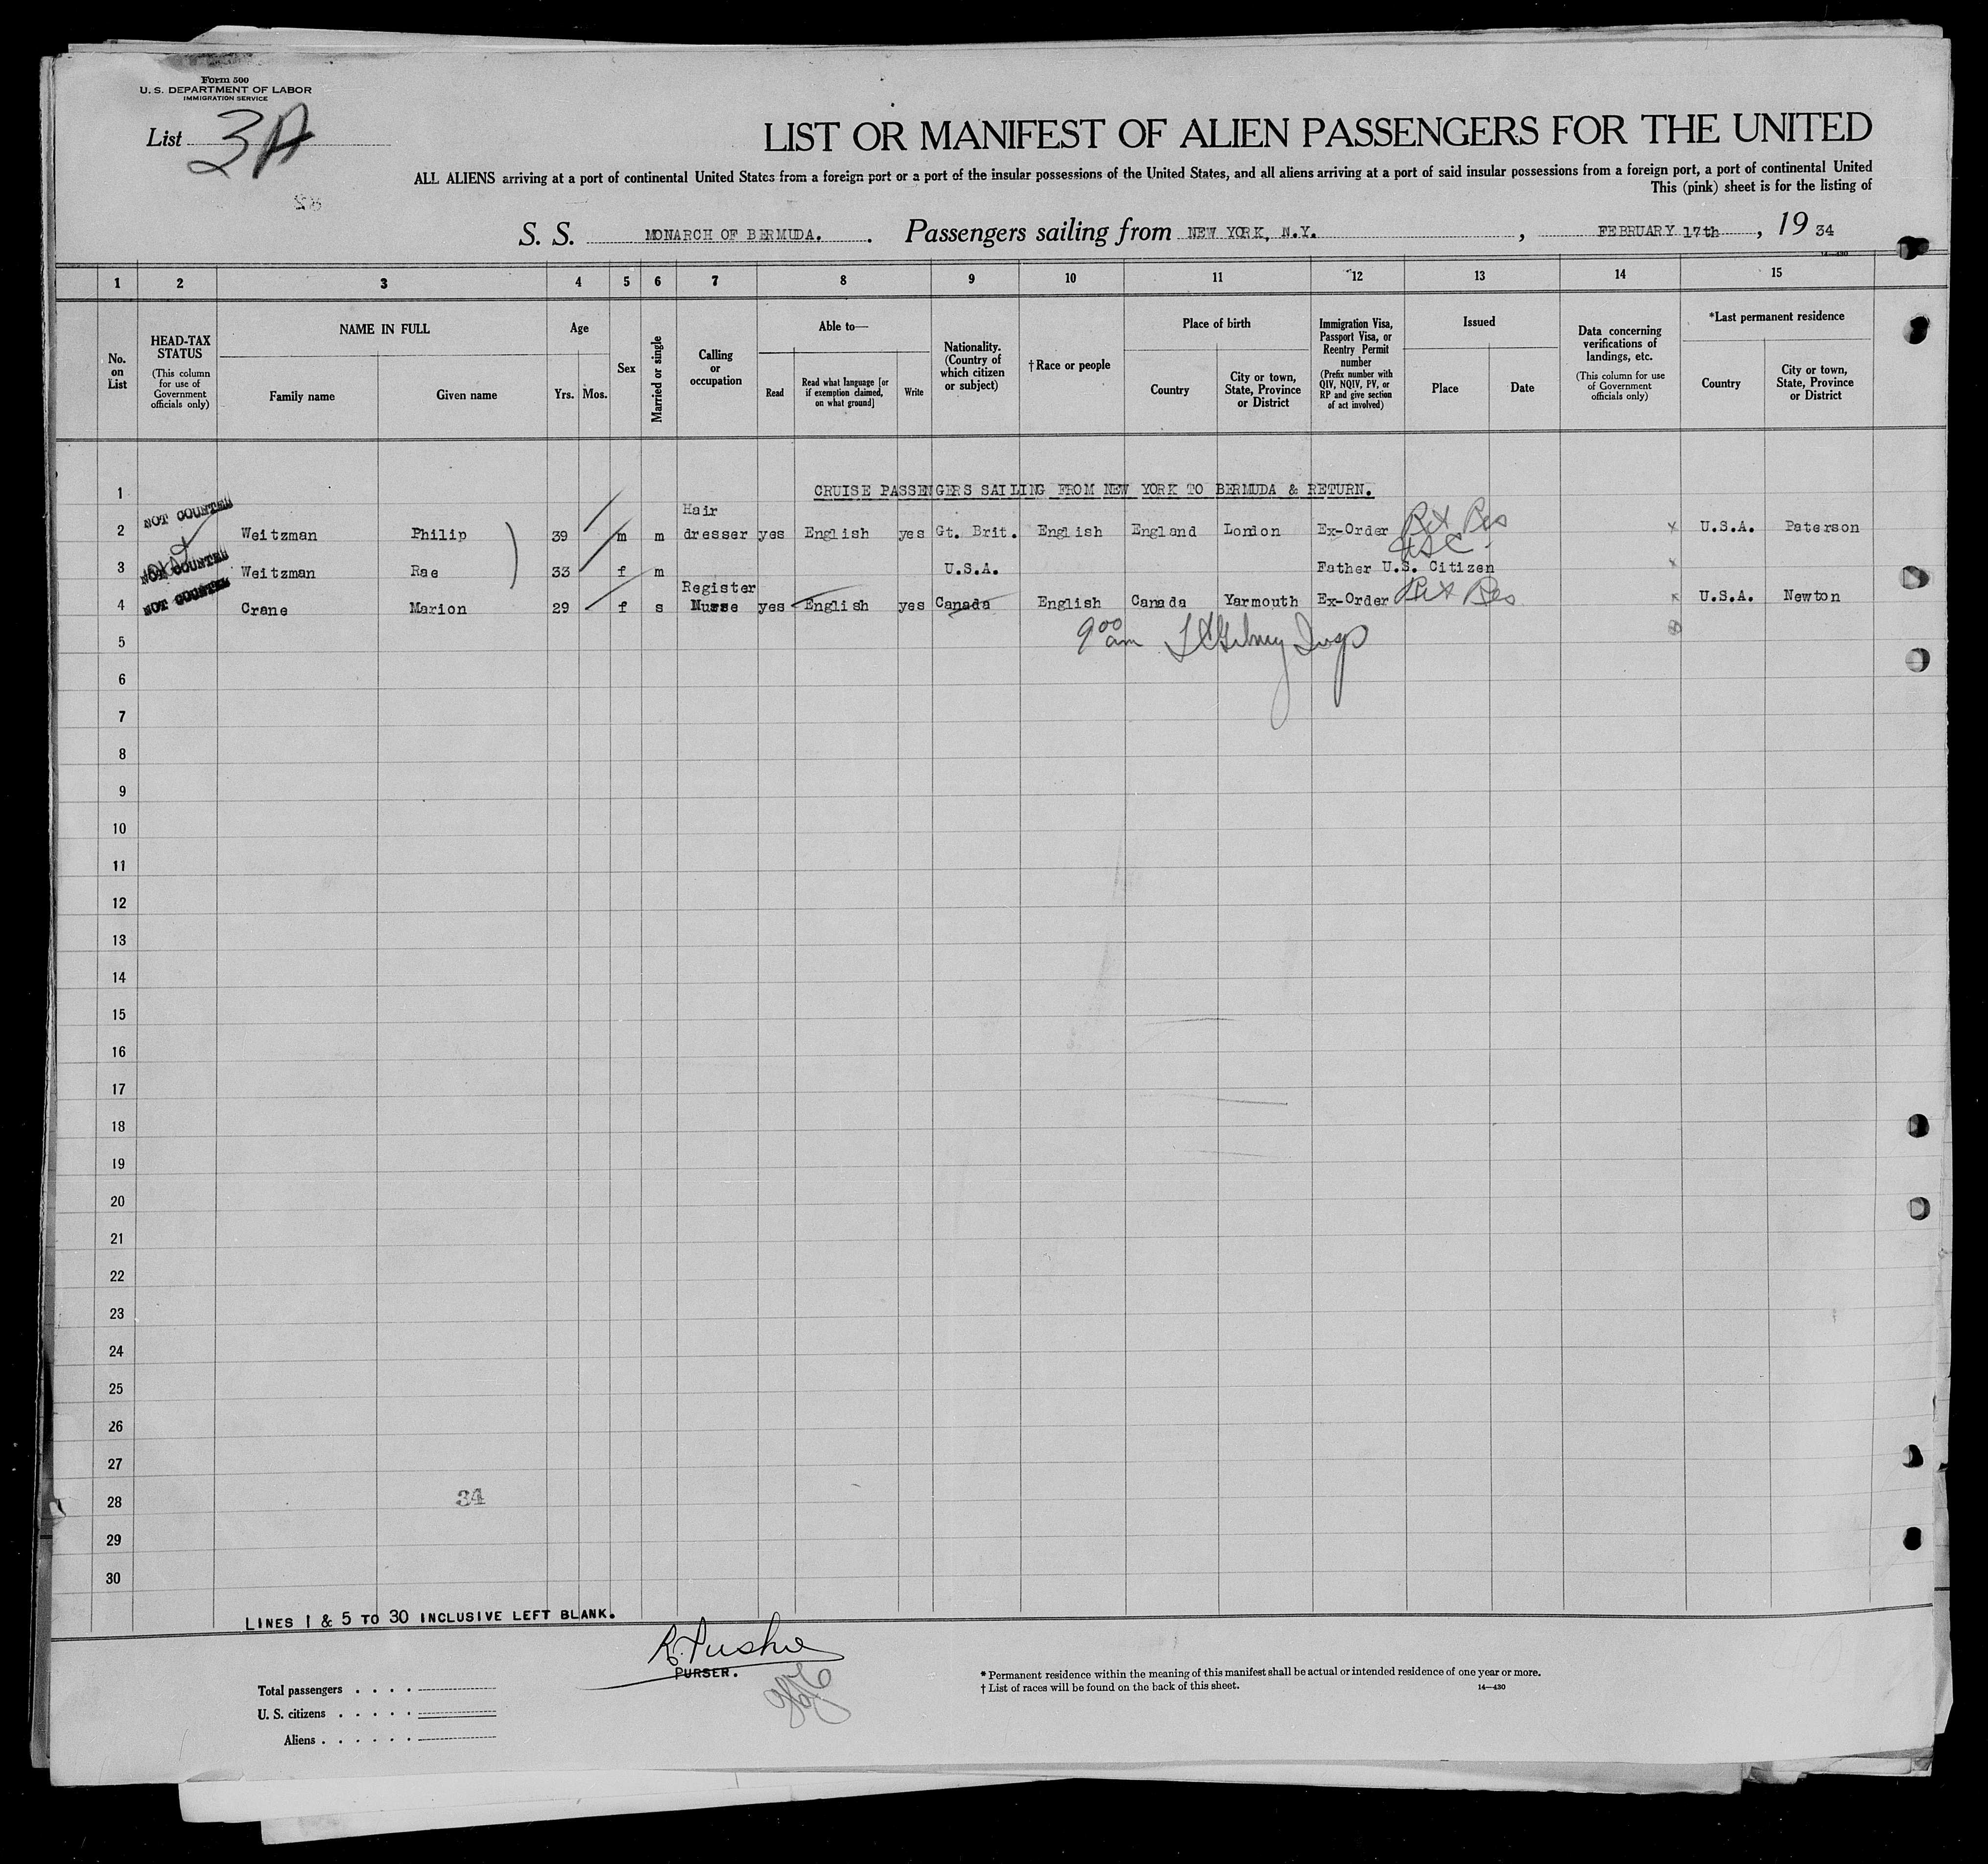 Form 500
U. S. DEPARTMENT OF LABOR
IMMIGRATION SERVICE
List 3A
LIST OR MANIFEST OF ALIEN PASSENGERS FOR THE UNITED
ALL ALIENS arriving at a port of continental United States from a foreign port or a port of the insular possessions of the United States, and all aliens arriving at a port of said insular possessions from a foreign port, a port of continental United
This (pink) sheet is for the listing of
S. S. MONARCH OF BERMUDA. Passengers sailing from NEW YORK, N.Y., FEBRUARY 17th, 19 34
14—430
1 2 3 4 5 6 7 8 9 10 11 12 13 14 15
No. on List
HEAD-TAX STATUS
(This column for use of Government officials only)
NAME IN FULL
Family name Given name
Age
Yrs. Mos.
Sex
Married or single
Calling or occupation
Able to—
Read
Read what language [or if exemption claimed, on what ground]
Write
Nationality. (Country of which citizen or subject)
†Race or people
Place of birth
Country
City or town, State, Province or District
Immigration Visa, Passport Visa, or Reentry Permit number
(Prefix number with QIV, NQIV, PV, or RP and give section of act involved)
Issued
Place Date
Data concerning verifications of landings, etc.
(This column for use of Government officials only)
*Last permanent residence
Country
City or town, State, Province or District
1 CRUISE PASSENGERS SAILING FROM NEW YORK TO BERMUDA & RETURN.
NOT COUNTED
2 Weitzman Philip 39 m m Hair dresser yes English yes Gt. Brit. English England London Ex-Order Ret Res x U.S.A. Paterson
USC
NOT COUNTED
3 Weitzman Rae 33 f m U.S.A. Father U.S. Citizen x
NOT COUNTED
4 Crane Marion 29 f s Register Nurse yes English yes Canada English Canada Yarmouth Ex-Order Ret Res x U.S.A. Newton
5 9 00 am Insp
6
7
8
9
10
11
12
13
14
15
16
17
18
19
20
21
22
23
24
25
26
27
28 34
29
30
LINES 1 & 5 TO 30 INCLUSIVE LEFT BLANK.
PURSER.
Total passengers
U. S. citizens
Aliens
* Permanent residence within the meaning of this manifest shall be actual or intended residence of one year or more.
† List of races will be found on the back of this sheet.
14—430